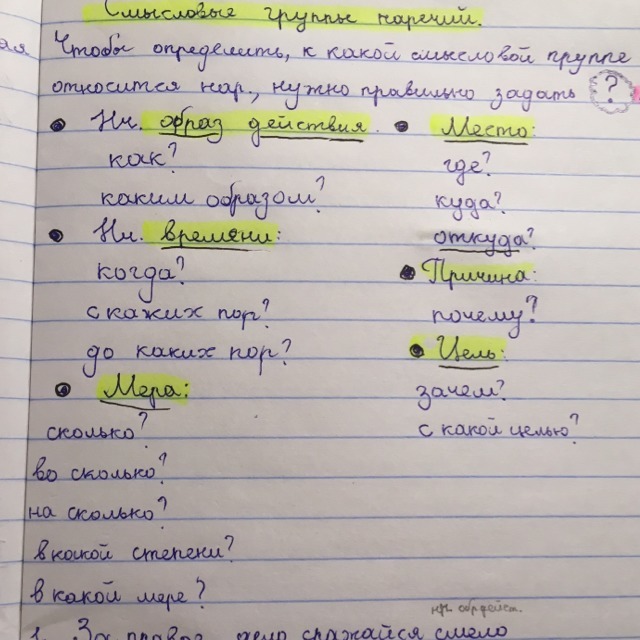 Смысловые группы наречий.
ая
Чтобы определить, к какой смысловой группе
относится нар., нужно правильно задать ?
• Нч. образ действия.
как?
каким образом?
• Нч. времени:
когда?
с каких пор?
до каких пор?
• Мера:
сколько?
во сколько?
на сколько?
в какой степени?
в какой мере?
• Место:
где?
куда?
откуда?
• Причина:
почему?
• Цель:
зачем?
с какой целью?
1. За правое дело сражайся смело